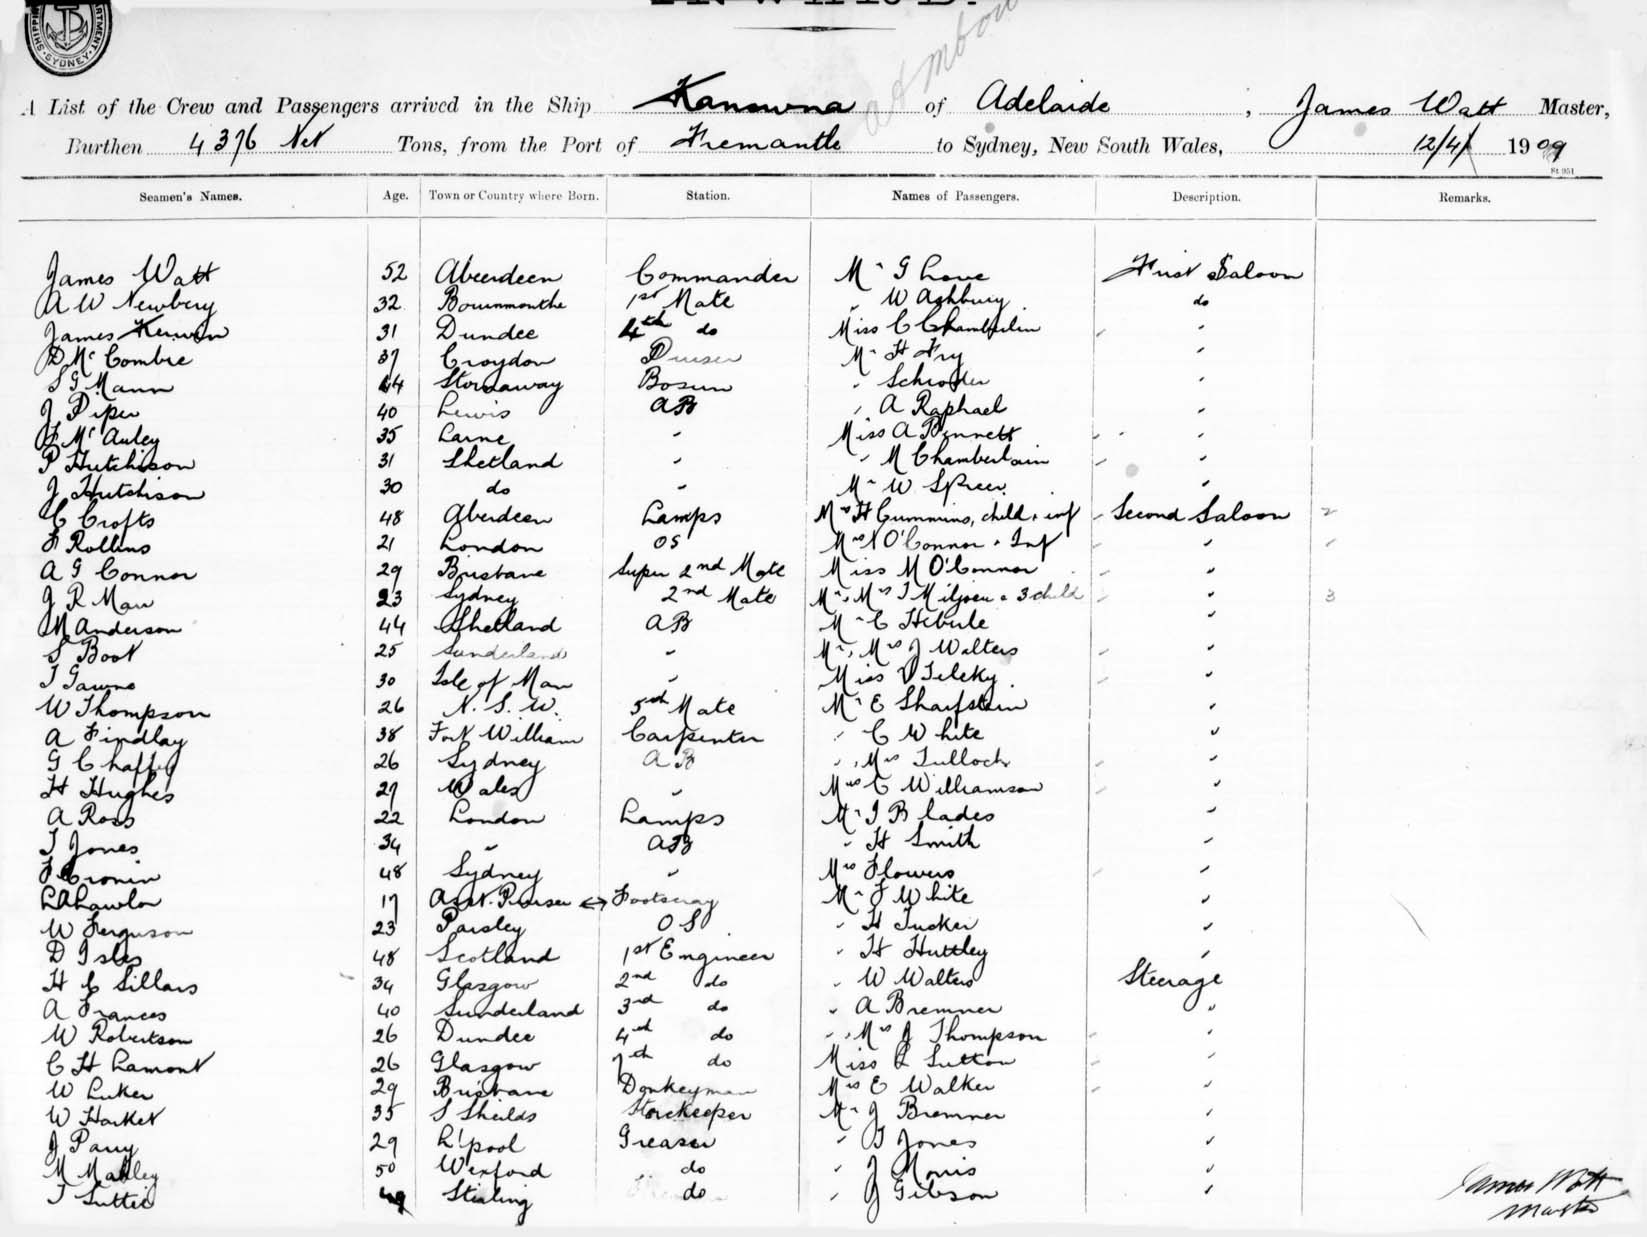 SHIPPING DEPARTMENT SYDNEY
INWARD.
A List of the Crew and Passengers arrived in the Ship Kanowna of Adelaide, James Watt Master,
Burthen 4376 Net Tons, from the Port of Fremantle to Sydney, New South Wales, 12/4/ 1909
St 951
Seamen's Names. Age. Town or Country where Born. Station. Names of Passengers. Description. Remarks.
James Watt 52 Aberdeen Commander Mr G Love First Saloon
A W Newbery 32 Bournmouthe 1st Mate " W Ashbury do
James Kerwin 31 Dundee 4th do Miss C Chamberlin "
D McCombie 37 Croydon Purser Mr H Fry "
S G Mann 44 Stornaway Bosun " Schroder "
J Piper 40 Lewis AB " A Raphael "
F McAuley 35 Larne " Miss A Bennett "
P Hutchison 31 Shetland " " M Chamberlain "
J Hutchison 30 do " Mr W Spreer "
C Crofts 48 Aberdeen Lamps Mrs H Cummins, child & inf Second Saloon 2
F Rollins 21 London OS Mrs N O'Connor & Inf " 1
A G Connor 29 Brisbane Super 2nd Mate Miss M O'Connor "
J R Maw 23 Sydney 2nd Mate Mr & Mrs I Miljoen & 3 child " 3
M Anderson 44 Shetland AB Mr C Heberle "
S Boot 25 Sunderland " Mr & Mrs J Walters "
T Gawne 30 Isle of Man " Miss V Teleky "
W Thompson 26 N. S. W. 5th Mate Mr E Sharfstein "
A Findlay 38 Fort William Carpenter " C White "
G Chaffey 26 Sydney AB " & Mrs Tulloch "
H Hughes 29 Wales " Mrs C Williamson "
A Ross 22 London Lamps Mr I Blades "
T Jones 34 " AB " H Smith "
F Cronin 48 Sydney " Mrs Flowers "
L A Lawlor 17 Asst. Purser ↔ Footscray Mr F White "
W Ferguson 23 Paisley OS " H Tucker "
D Isles 48 Scotland 1st Engineer " H Huttley "
H C Sillars 34 Glasgow 2nd do " W Walters Steerage
A Frances 40 Sunderland 3rd do " A Bremner "
W Robertson 26 Dundee 4th do " & Mrs J Thompson "
C H Lamont 26 Glasgow 7th do Miss L Sutton "
W Luker 29 Brisbane Donkeyman Mrs E Walker "
W Harket 35 S Sheilds Storekeeper Mr J Bremner "
J Parry 29 L'pool Greaser " T Jones "
M Mabley 50 Wexford do " J Morris "
T Suttie 49 Stirling do " J Gibson "
James Watt
Master